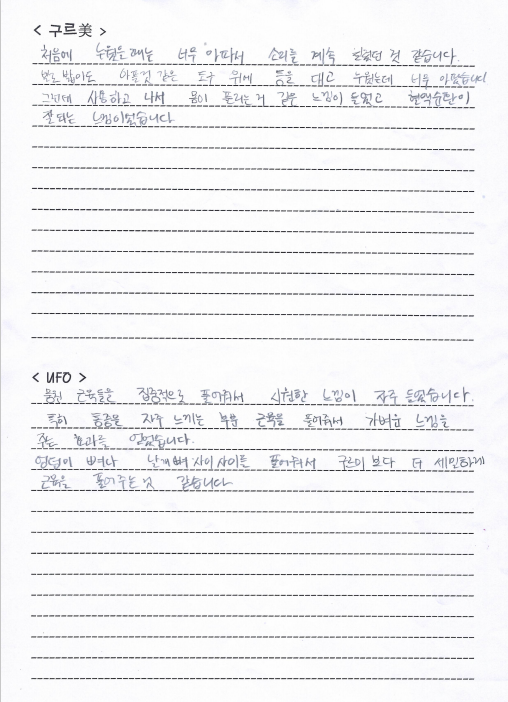 < 구르美 >
처음에 누웠을 때는 너무 아파서 소리를 계속 질렀던 것 같습니다.
발로 밟아도 아플것 같은 도구 위에 등을 대고 누웠는데 너무 아팠습니다
그런데 사용하고 나서 몸이 풀리는거 같은 느낌이 들었고 혈액순환이
잘 되는 느낌이었습니다
< UFO >
뭉친 근육들을 집중적으로 풀어줘서 시원한 느낌이 자주 들었습니다.
특히 통증을 자주 느끼는 부분 근육을 풀어줘서 가벼운 느낌을
주는 효과를 얻었습니다.
엉덩이 뼈나 날개뼈 사이사이를 풀어줘서 구르미 보다 더 세밀하게
근육을 풀어주는 것 같습니다